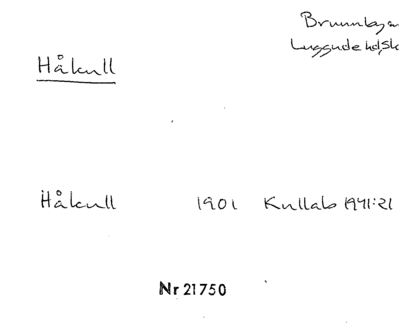 Brunnby sn
Luggude hd, Sk
Håkull
Håkull 1901 Kullab 1941:21
Nr 21750